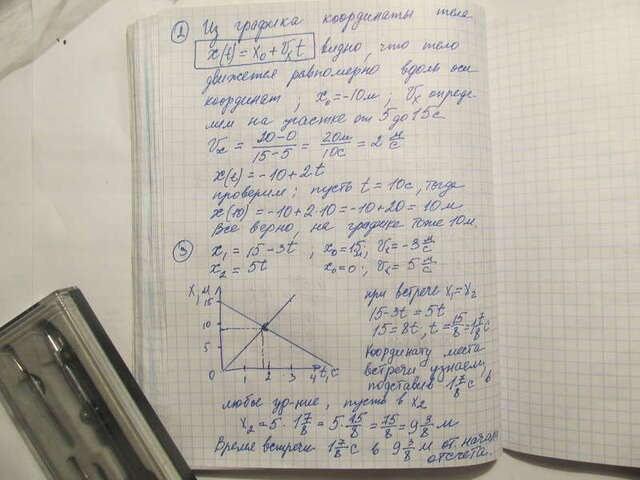 ① Из графика координаты тела
x(t) = x₀ + Vₓt видно, что тело
движется равномерно вдоль оси
координат, x₀ = -10 м; Vₓ опреде-
лем на участке от 5 до 15 с
Vₓ = (20-0)/(15-5) = 20м/10с = 2 м/с
x(t) = -10 + 2t
проверим: пусть t = 10с, тогда
x(10) = -10 + 2·10 = -10 + 20 = 10 м
Все верно, на графике тоже 10 м.
③ x₁ = 15 - 3t, x₀ = 15 м; Vₓ = -3 м/с
x₂ = 5t x₀ = 0; Vₓ = 5 м/с
x, м
15
10
5
0 1 2 3 4 t, с
при встрече x₁ = x₂
15 - 3t = 5t
15 = 8t, t = 15/8 = 1 7/8 с
Координату места
встречи узнаем,
подставив 1 7/8 с в
любое ур-ние, пусть в x₂
x₂ = 5 · 1 7/8 = 5 · 15/8 = 75/8 = 9 3/8 м
Время встречи 1 7/8 с в 9 3/8 м от начала
отсчета.